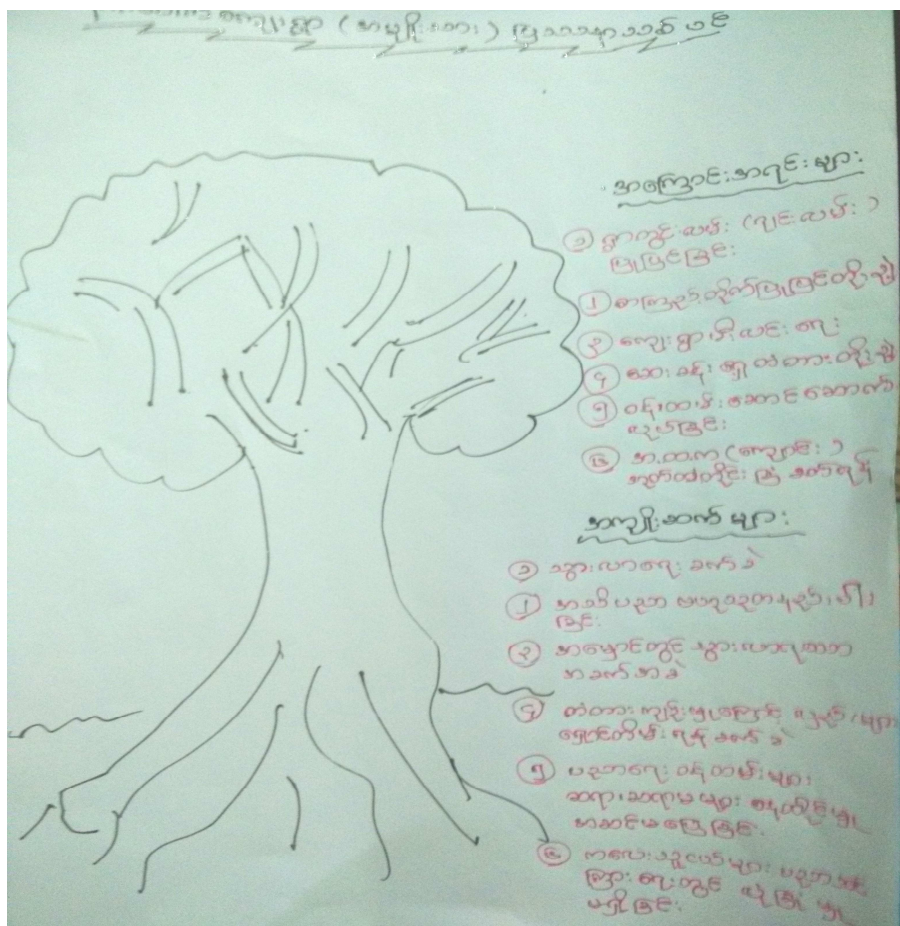 (အမျိုးသား) ပြဿနာသစ်ပင်
အကြောင်းအရင်းများ
၁ ရွာတွင်းလမ်း (ချင်းလမ်း)
ပြုပြင်ခြင်း
၂ စာကြည့်တိုက်ပြုပြင်တိုးချဲ့
၃ ကျေးရွာမီးလင်းရေး
၄ ဆေးခန်းရှေ့တံတားတိုးချဲ့
၅ ဝန်ထမ်းဆောင်ဆောက်
လုပ်ခြင်း
၆ အ.ထ.က (ကျောင်း)
အုတ်တံတိုင်းခြံခတ်ရန်
အကျိုးဆက်များ
၁ သွားလာရေးခက်ခဲ
၂ အသိပညာ ဗဟုသုတနည်းပါး
ခြင်း
၃ အမှောင်တွင်သွားလာရသော
အခက်အခဲ
၄ တံတားကျဉ်းမှုကြောင့်
ရှောင်တိမ်းရန်ခက်ခဲ
၅ ပညာရေးဝန်ထမ်းများ
ဆရာ၊ဆရာမများ နေထိုင်မှု
အဆင်မပြေခြင်း
၆ ကလေးသူငယ်များ
လုံခြုံမှု
မရှိခြင်း